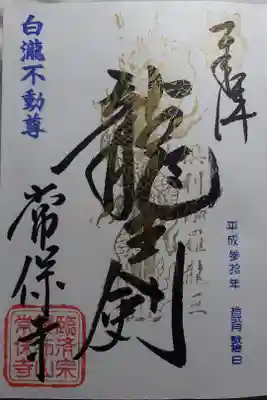 奉拝
平成参拾年 拾弐月
龍王剣
白瀧不動尊
常保寺
臨済宗
常保寺